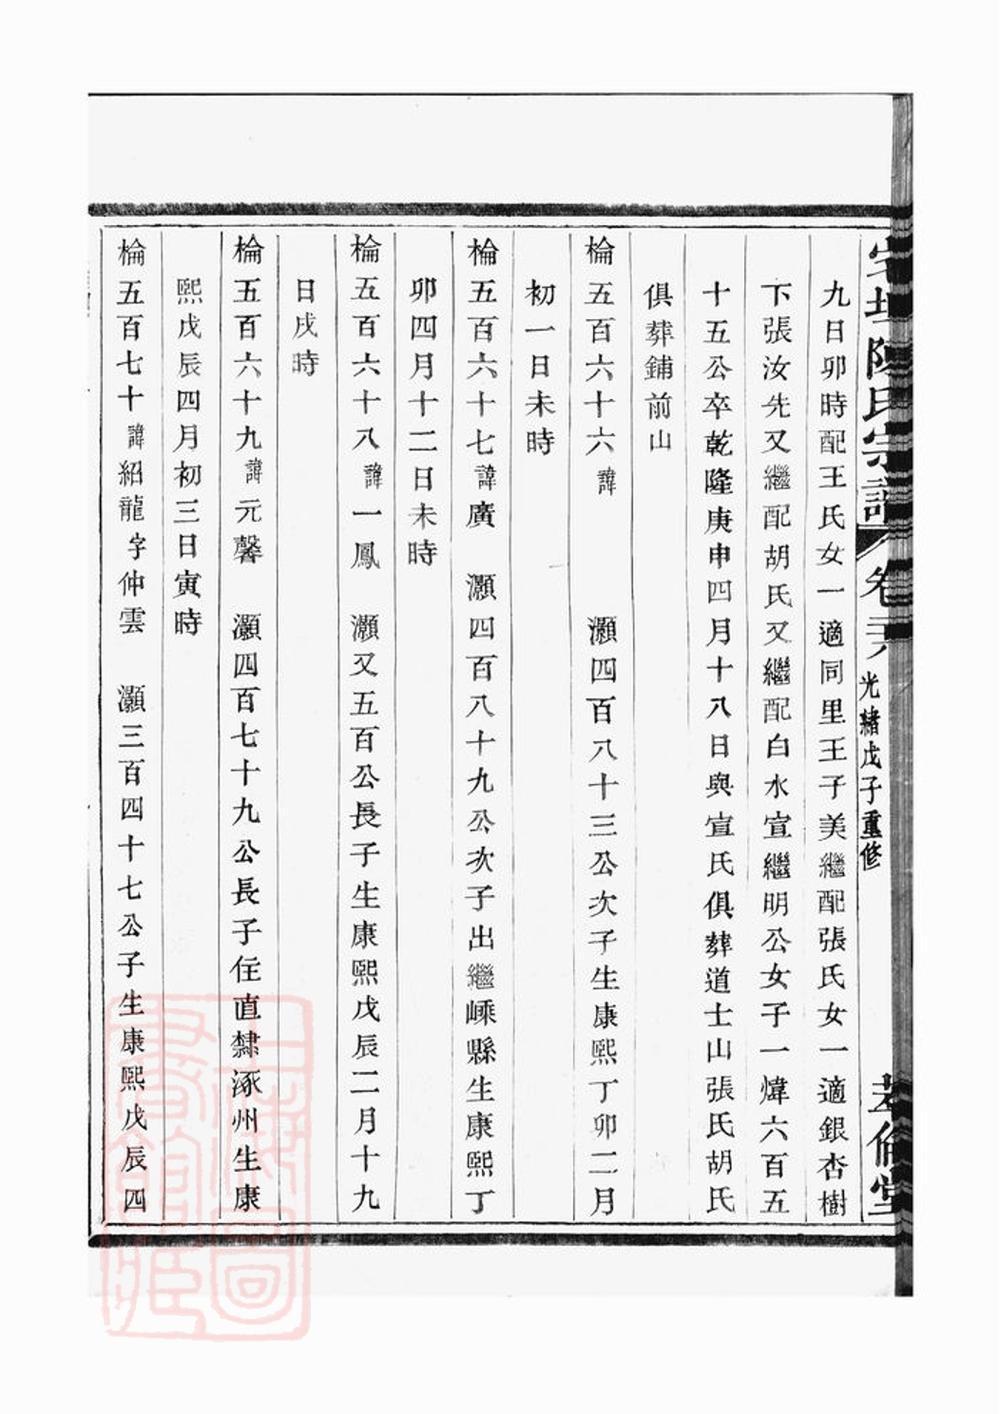 陳氏宗譜 卷 光緒戊子重修 堂
九日卯時配王氏女一適同里王子美繼配張氏女一適銀杏樹
下張汝先又繼配胡氏又繼配白水宣繼明公女子一煒六百五
十五公卒乾隆庚申四月十八日與宣氏俱葬道士山張氏胡氏
俱葬鋪前山
棆五百六十六諱　灝四百八十三公次子生康熙丁卯二月
初一日未時
棆五百六十七諱廣　灝四百八十九公次子出繼嵊縣生康熙丁
卯四月十二日未時
棆五百六十八諱一鳳　灝又五百公長子生康熙戊辰二月十九
日戌時
棆五百六十九諱元馨　灝四百七十九公長子住直隸涿州生康
熙戊辰四月初三日寅時
棆五百七十諱紹龍字仲雲　灝三百四十七公子生康熙戊辰四
上海圖書館藏